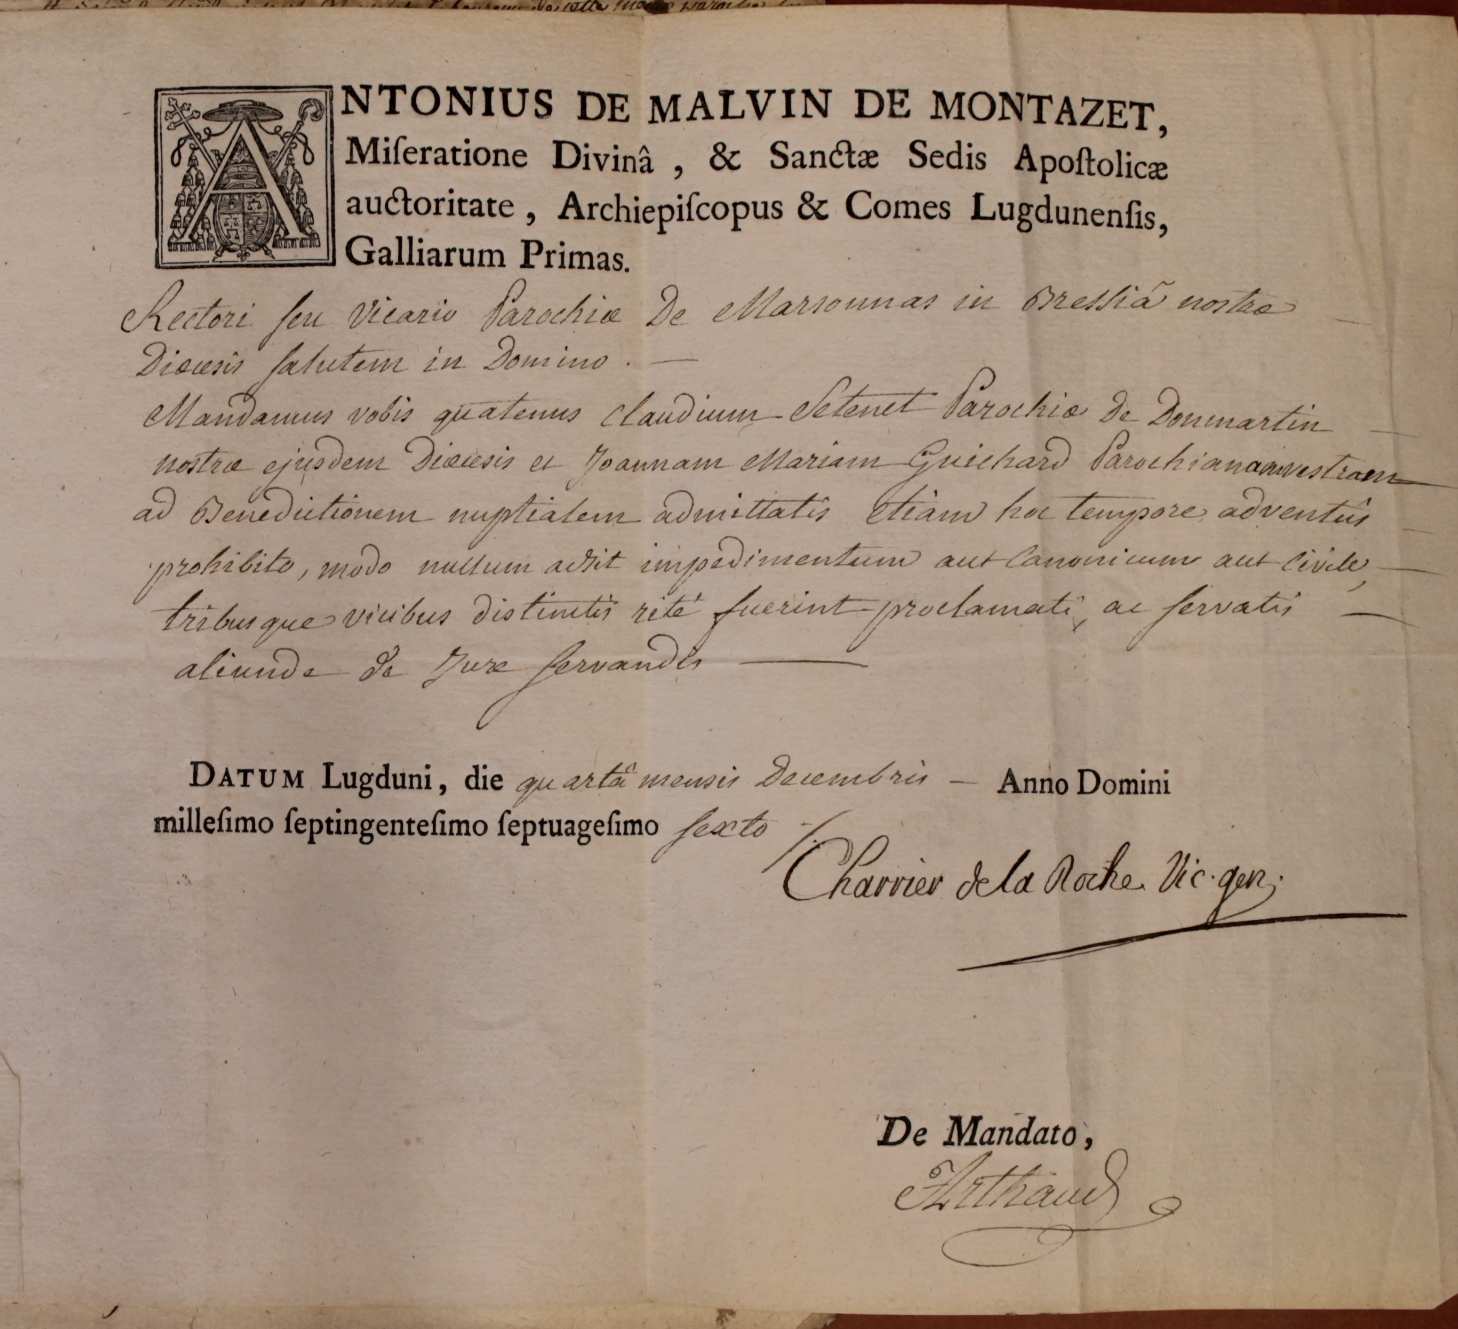 ANTONIUS DE MALVIN DE MONTAZET,
Miſeratione Divinâ, & Sanctæ Sedis Apoſtolicæ
auctoritate, Archiepiſcopus & Comes Lugdunenſis,
Galliarum Primas.
Rectori ſeu Vicario Parochiæ De Marsonnas in Bressiâ nostræ
Diœcesis ſalutem in Domino.
Mandamus vobis quatenus Claudium Setenet Parochiæ de Donmartin
nostræ ejusdem Diœcesis et Joannam Mariam Guichard Parochianam vestram
ad Benedictionem nuptialem admittatis etiam hoc tempore adventûs
prohibito, modo nullum adsit impedimentum aut Canonicum aut Civile,
tribusque vicibus distinctis rité fuerint proclamati, ac ſervatis
aliunde de Jure ſervandis
DATUM Lugduni, die quartâ mensis Decembris Anno Domini
milleſimo ſeptingenteſimo ſeptuageſimo ſexto
Charrier de la Roche Vic. gen.
De Mandato,
Arthaud